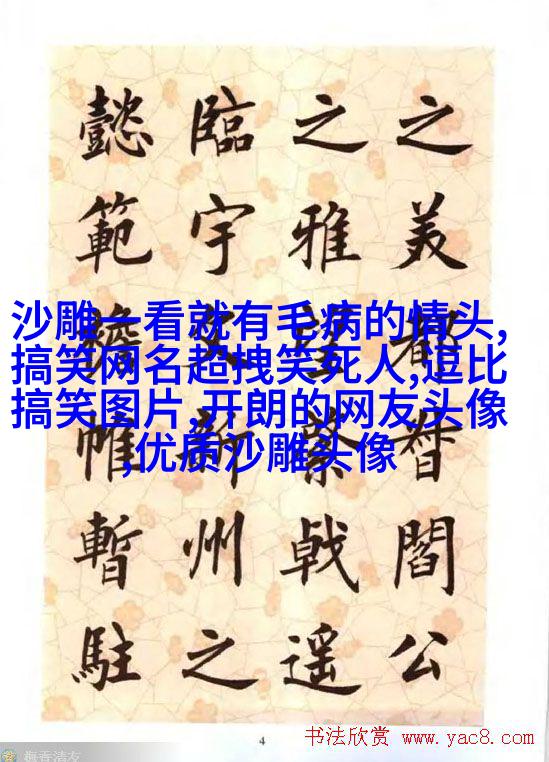 之美都督閻公
之雅望棨戟遥
臨宇文新州之
懿範襜帷暫駐
沙雕一看就有毛病的情头,
搞笑网名超拽笑死人,逗比
搞笑图片,开朗的网友头像
,优质沙雕头像
4
书法欣赏 www.yac8.com
梅香清友